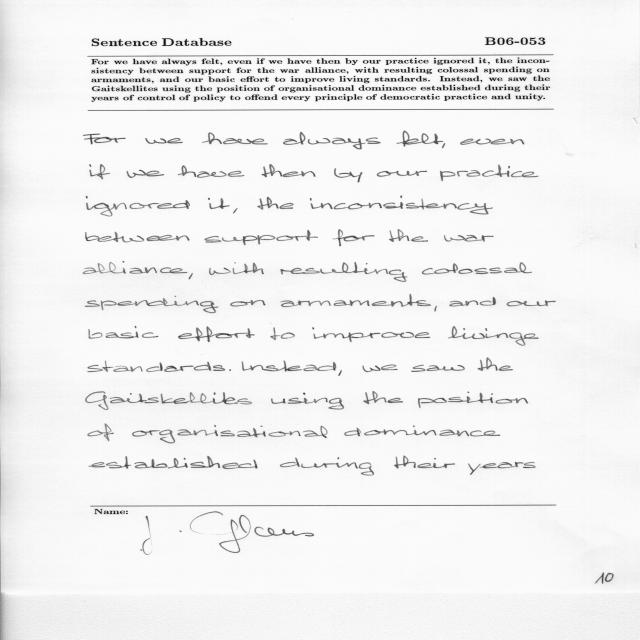 Sentence Database B06-053
For we have always felt, even if we have then by our practice ignored it, the incon-
sistency between support for the war alliance, with resulting colossal spending on
armaments, and our basic effort to improve living standards. Instead, we saw the
Gaitskellites using the position of organisational dominance established during their
years of control of policy to offend every principle of democratic practice and unity.
For we have always felt, even
if we have then by our practice
ignored it, the inconsistency
between support for the war
alliance, with resulting colossal
spending on armaments, and our
basic effort to improve livinge
standards. Instead, we saw the
Gaitskellites using the position
of organisational dominance
established during their years
Name:
J.
10